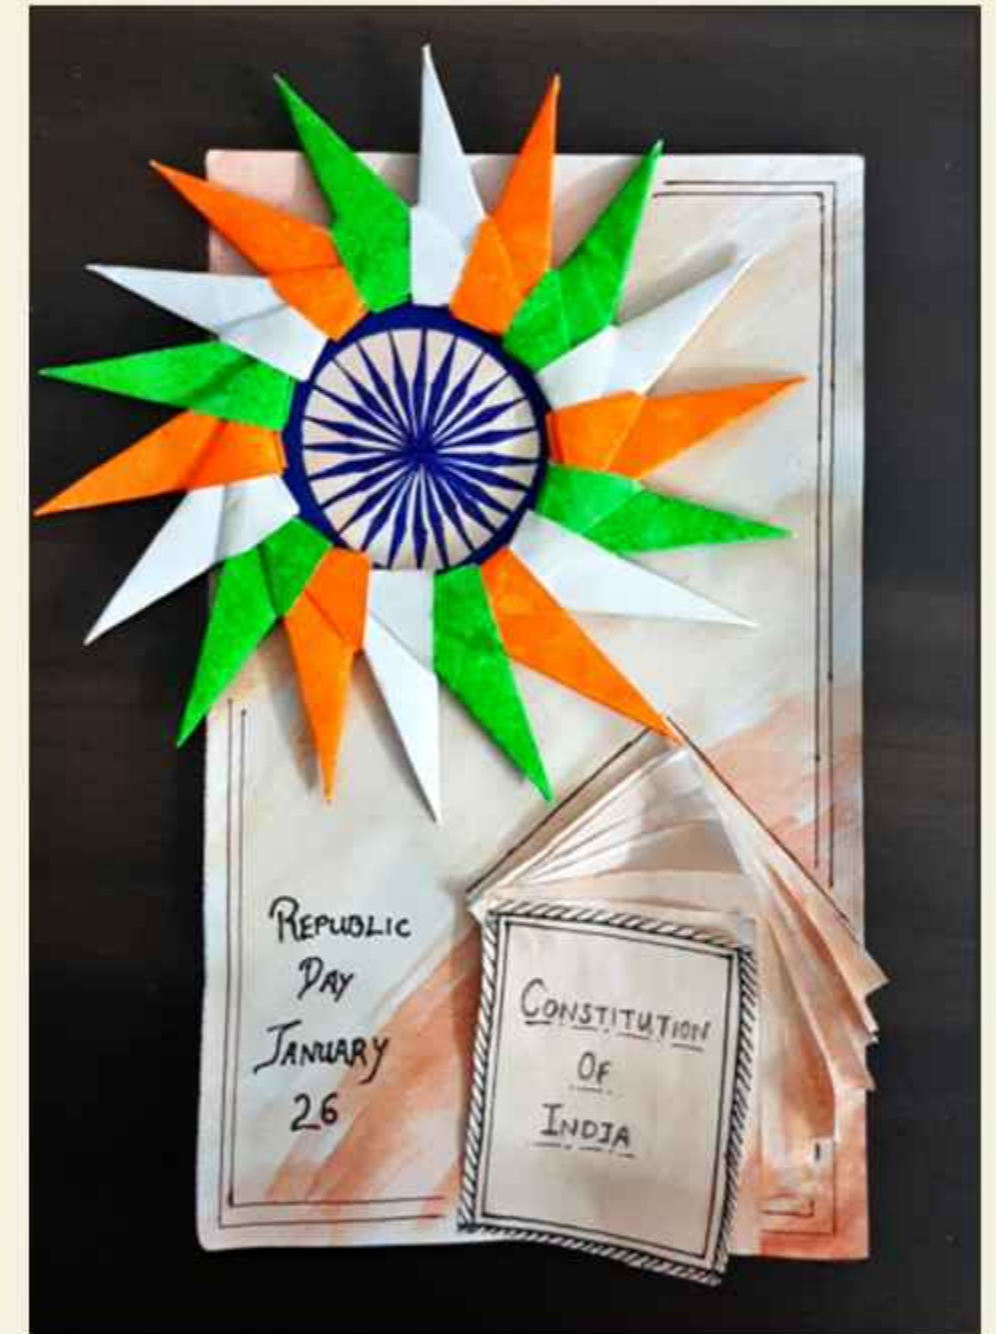 REPUBLIC
DAY
JANUARY
26
CONSTITUTION
OF
INDIA